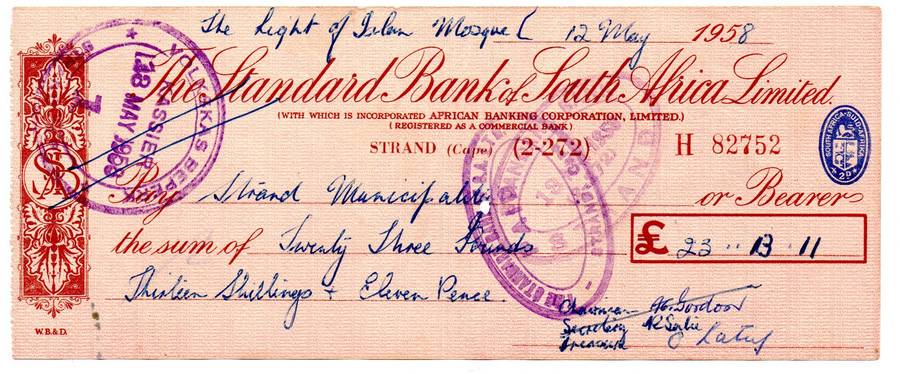 The Light of Islam Mosque 12 May 1958
The Standard Bank of South Africa Limited.
(WITH WHICH IS INCORPORATED AFRICAN BANKING CORPORATION, LIMITED.)
(REGISTERED AS A COMMERCIAL BANK)
STRAND (Cape) (2-272) H 82752
SOUTH AFRICA · SUID-AFRIKA
2D
VOLKSKAS BEPERK
KASSIER
13 MAY 1958
7
SBA
Pay Strand Municipality or Bearer
the sum of Twenty Three Pounds £ 23 " 13 " 11
Thirteen Shillings + Eleven Pence.
Chairman
Secretary
Treasurer
W.B.&D.